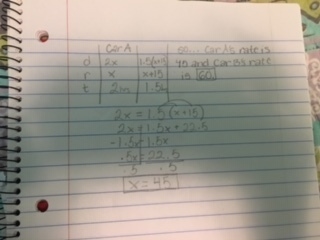 Car A
d 2x 1.5(x+15)
r x x+15
t 2hrs 1.5h
so... Car A's rate is
45 and Car B's rate
is 60
2x = 1.5(x+15)
2x = 1.5x + 22.5
-1.5x 1.5x
.5x = 22.5
.5 .5
x = 45